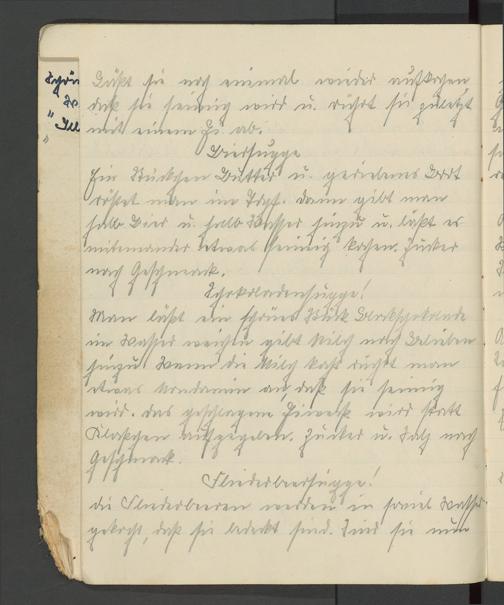 Läßt sie noch einmal wieder aufkochen,
daß sie seimig wird u. rührt sie zuletzt
mit einem Ei ab.
Biersuppe
Ein Stückchen Butter u. geriebenes Brot
röstet man im Topf. Dann gibt man
halb Bier u. halb Wasser hinzu u. läßt es
miteinander etwas seimig kochen. Zucker
nach Geschmack.
Schokoladensuppe!
Man läßt ein schönes Stück Blockschokolade
im Wasser weich u. gibt Milch nach Belieben
hinzu. Wenn die Milch kocht rührt man
etwas Mondamin an, daß sie seimig
wird. Das geschlagene Eiweiß wird statt
Klößchen aufgegeben. Zucker u. Salz nach
Geschmack.
Fliederbeersuppe!
Die Fliederbeeren werden in soviel Wasser
gekocht, daß sie bedeckt sind. Sind sie nun